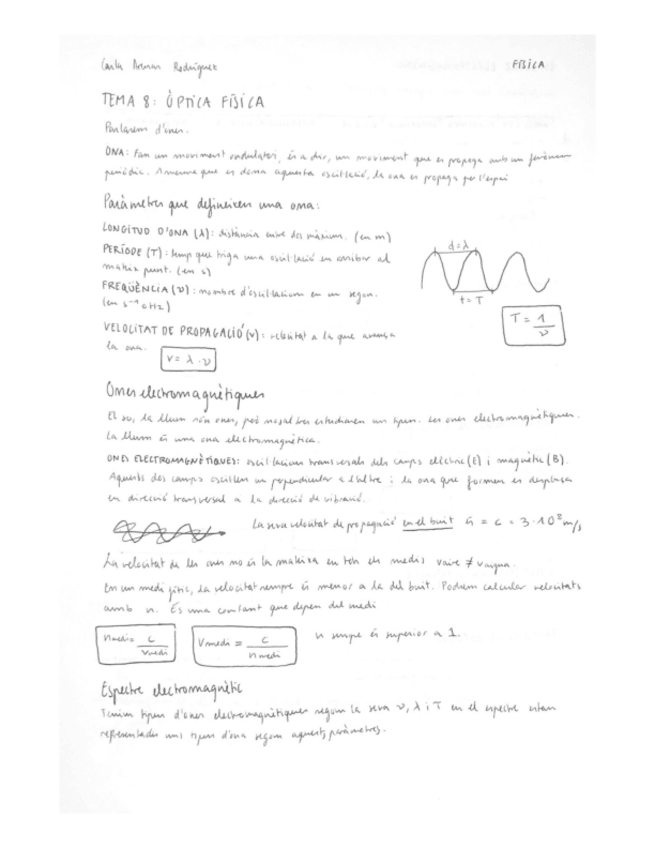 Carla Rodríguez
FÍSICA
TEMA 8: ÒPTICA FÍSICA
Parlarem d'ones.
ONA: Fan un moviment ondulatori, és a dir, un moviment que es propaga amb un fenomen
periòdic. A mesura que es dona aquesta oscil·lació, la ona es propaga per l'espai
Paràmetres que defineixen una ona:
LONGITUD D'ONA (λ): distància entre dos màxims. (en m)
PERÍODE (T): temps que triga una oscil·lació en arribar al
mateix punt. (en s)
FREQÜÈNCIA (ν): nombre d'oscil·lacions en un segon.
(en s⁻¹ o Hz)
d = λ
t = T
T = 1/ν
VELOCITAT DE PROPAGACIÓ (v): velocitat a la que avança
la ona.
v = λ · ν
Ones electromagnètiques
El so, la llum són ones, però nosaltres estudiarem un tipus. Les ones electromagnètiques.
La llum és una ona electromagnètica.
ONES ELECTROMAGNÈTIQUES: oscil·lacions transversals dels camps elèctric (E) i magnètic (B).
Aquests dos camps oscil·len un perpendicular a l'altre i la ona que formen es desplaça
en direcció transversal a la direcció de vibració.
La seva velocitat de propagació en el buit és = c = 3·10⁸ m/s
La velocitat de les ones no és la mateixa en tots els medis v aire ≠ v aigua.
En un medi físic, la velocitat sempre és menor a la del buit. Podem calcular velocitats
amb n. És una constant que depen del medi
n medi = c / v medi
v medi = c / n medi
n sempre és superior a 1.
Espectre electromagnètic
Tenim tipus d'ones electromagnètiques segons la seva ν, λ i T en el espectre estan
representades uns tipus d'ona segons aquests paràmetres.